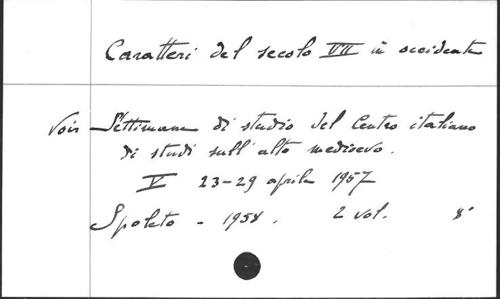 Caratteri del secolo VII in occidente
Voir Settimane di studio del Centro italiano
di studi sull'alto medioevo.
V 23-29 aprile 1957
Spoleto - 1958. 2 vol. 8°